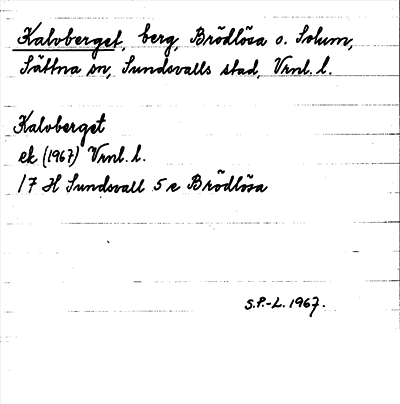 Kalvberget, berg, Brödlösa o. Solum,
Sättna sn, Sundsvalls stad, Vrnl. l.
Kalvberget
ek (1967) Vrnl. l.
17 H Sundsvall 5 e Brödlösa
S.P.-L. 1967.